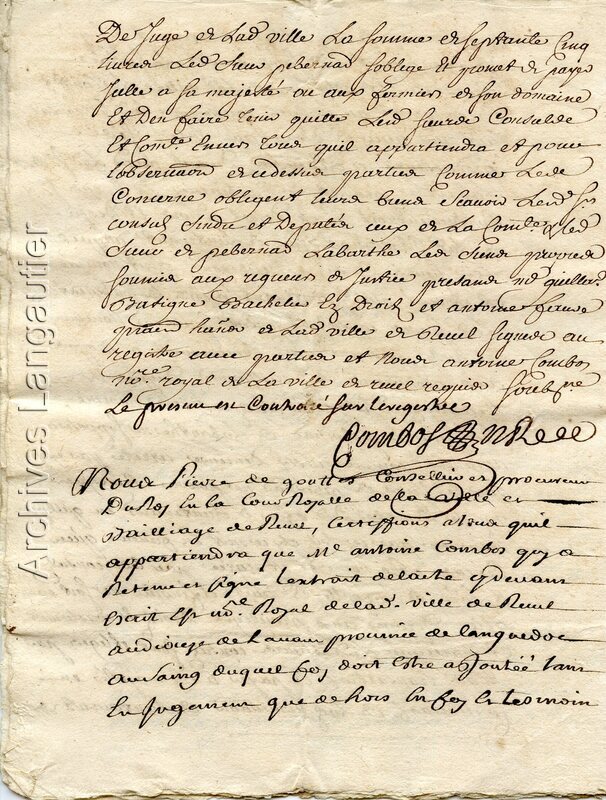 De Juge et Lad ville La somme de septante Cinq
livres Led Sieur pebernad soblege et promet de payer
Jcelle a sa majesté ou aux fermiers de son domaine
Et den faire tenir quitte Lesd sieurs Consuls
Et Com.te Envers tous quil appartiendra et pour
lobservaon de cedessus parties Comme Les
Concerne obligent leurs biens scavoir Lesd Srs
consul sindic et Deputés ceux de La Com.te et Led
Sieur de pebernad Labarthe Les siens propres
soumis aux rigueurs de Justice presans
Batigne Bachelier Ez Droit et antoine
prau habans de Lad ville de Revel signes au
registre avec parties et Nous antoine Combos
no.re royal de La ville de revel requis soubne
Le present est Controlé sur le registre
Combos NRoial
Nous Pierre de gouttes Conseiller et procureur
Du Roy En la Cour Royalle de la ville et
Bailliage de Revel, Certiffions a tous quil
appartiendra que Mr antoine Combos quy a
Retenu et signé l'extrait de lacte cy devans
Escrit Est no.re Royal de lad. ville de Revel
au dioceze de Lavaur province de languedoc
au saing duquel foy doit Estre adjoutéé tant
En Jugement que de hors En foy et temoin
Archives Langautier